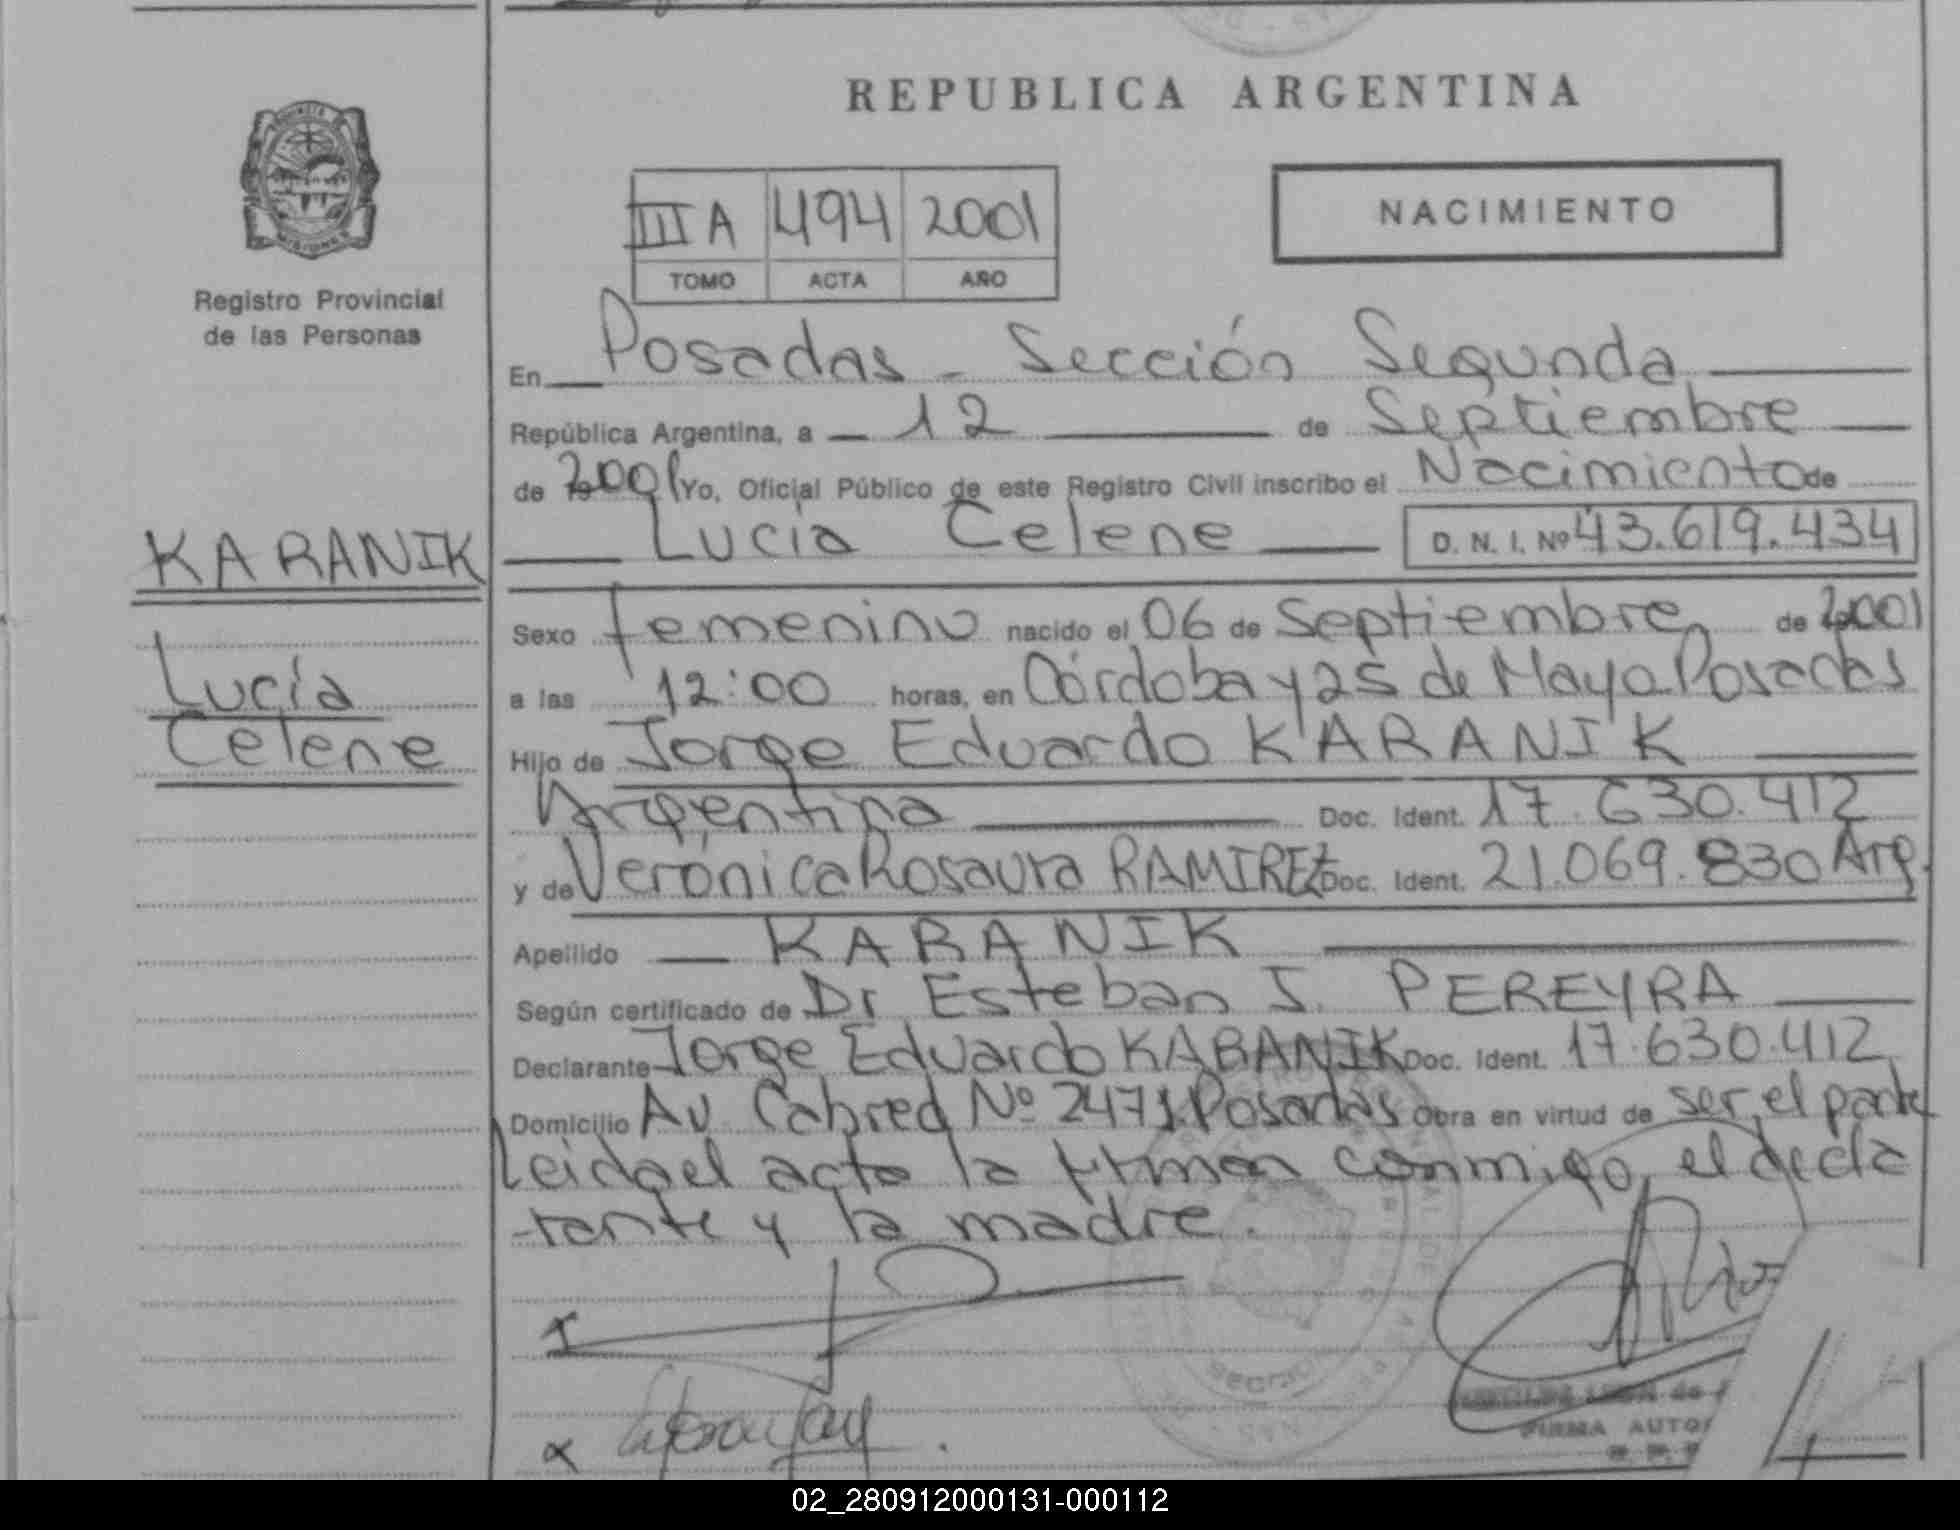 REPUBLICA ARGENTINA
PROVINCIA DE
MISIONES
Registro Provincial
de las Personas
III A 494 2001
TOMO ACTA AÑO
NACIMIENTO
En Posadas - Sección Segunda
República Argentina, a 12 de Septiembre
de 2001 Yo, Oficial Público de este Registro Civil inscribo el Nacimiento de
Lucía Celene D. N. I. Nº 43.619.434
KARANIK
Lucía
Celene
Sexo femenino nacido el 06 de Septiembre de 2001
a las 12:00 horas, en Córdoba y 25 de Mayo Posadas
Hijo de Jorge Eduardo KARANIK
Argentina Doc. Ident. 17.630.412
y de Verónica Rosaura RAMIREZ Doc. Ident. 21.069.830 Arg.
Apellido KARANIK
Según certificado de Dr Esteban J. PEREYRA
Declarante Jorge Eduardo KARANIK Doc. Ident. 17.630.412
Domicilio Av. Cabred Nº 2471 Posadas Obra en virtud de ser el padre
Leida el acta la firman conmigo, el decla
rante y la madre.
FIRMA AUTO
02_280912000131-000112